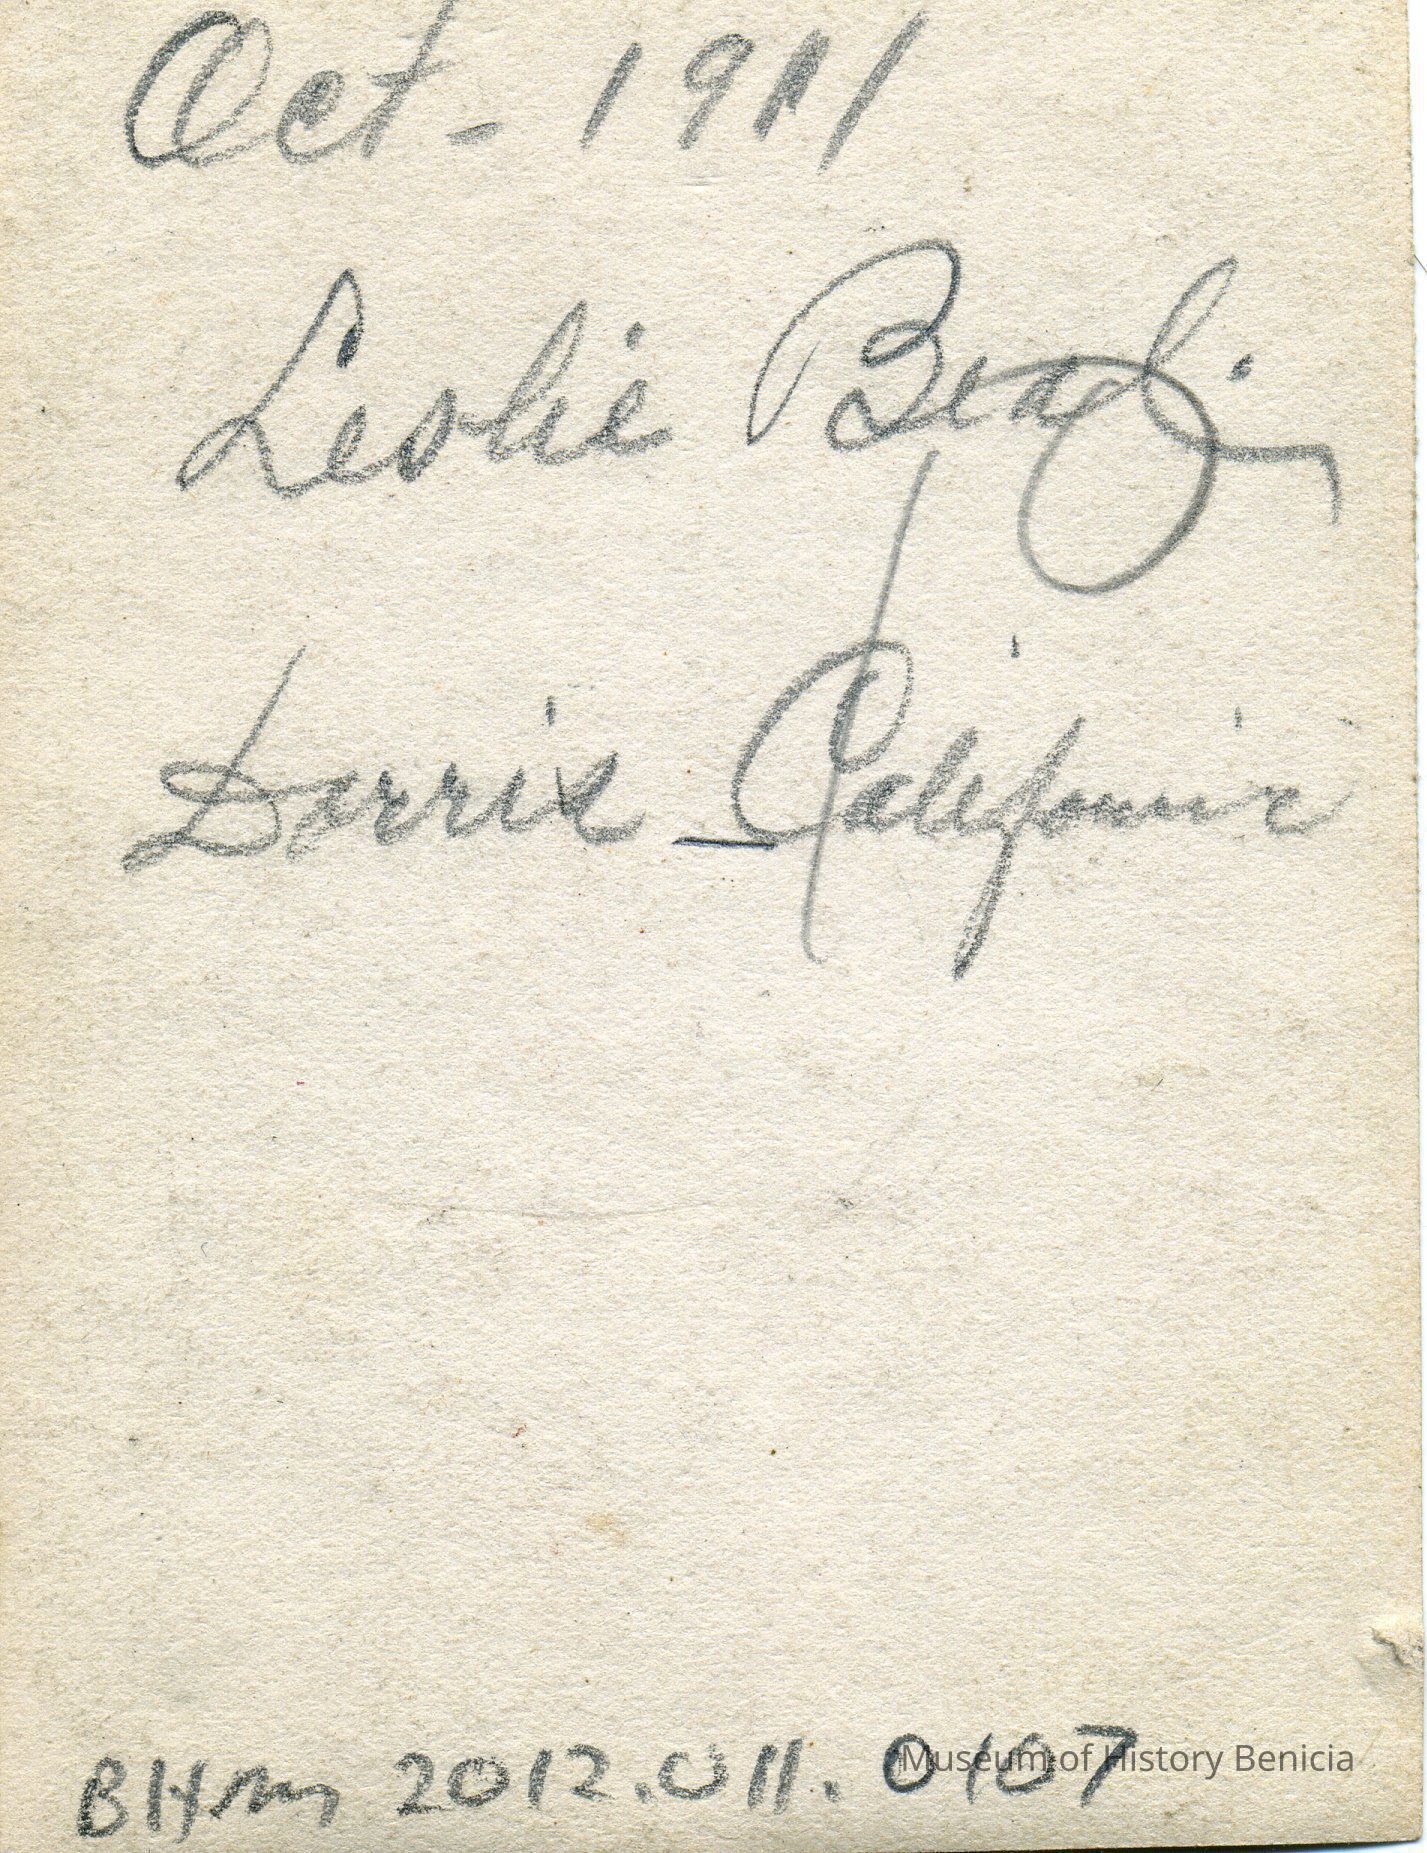 Oct - 1911
Leslie
Dorris - California
BHM 2012.011.0107
Museum of History Benicia